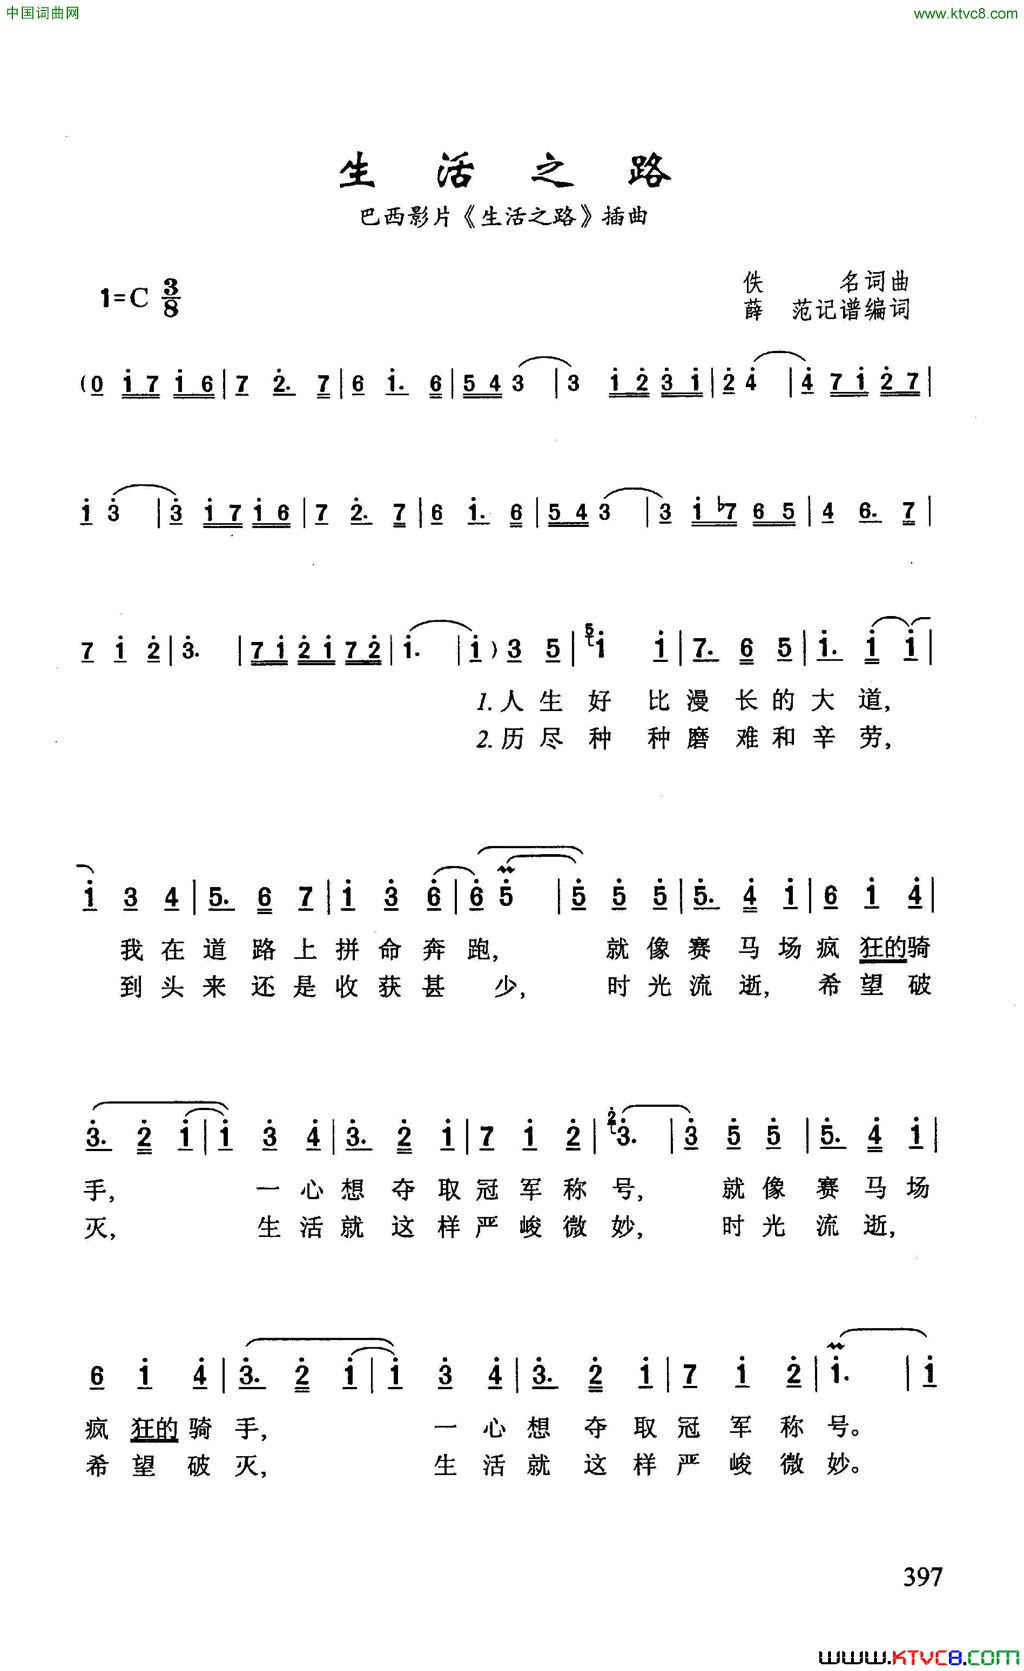 中国词曲网
www.ktvc8.com
生活之路
巴西影片《生活之路》插曲
1=C 3/8
佚 名词曲
薛 范记谱编词
(0 i 7 i 6 | 7 2. 7 | 6 i. 6 | 5 4 3 | 3 i 2 3 i | 2 4 | 4 7 i 2 7 |
i 3 | 3 i 7 i 6 | 7 2. 7 | 6 i. 6 | 5 4 3 | 3 i ♭7 6 5 | 4 6. 7 |
7 i 2 | 3. | 7 i 2 i 7 2 | i. | i ) 3 5 | 5 i i | 7. 6 5 | i. i i |
1.人生好 比漫长的大道,
2.历尽种 种磨难和辛劳,
i 3 4 | 5. 6 7 | i 3 6 | 6 5 | 5 5 5 | 5. 4 i | 6 i 4 |
我在道路上拼命奔跑, 就像赛马场疯狂的骑
到头来还是收获甚少, 时光流逝,希望破
3. 2 i | i 3 4 | 3. 2 i | 7 i 2 | 2 3. | 3 5 5 | 5. 4 i |
手, 一心想夺取冠军称号, 就像赛马场
灭, 生活就这样严峻微妙, 时光流逝,
6 i 4 | 3. 2 i | i 3 4 | 3. 2 i | 7 i 2 | i. | i
疯狂的骑手, 一心想夺取冠军称号。
希望破灭, 生活就这样严峻微妙。
397
www.KTVC8.COM